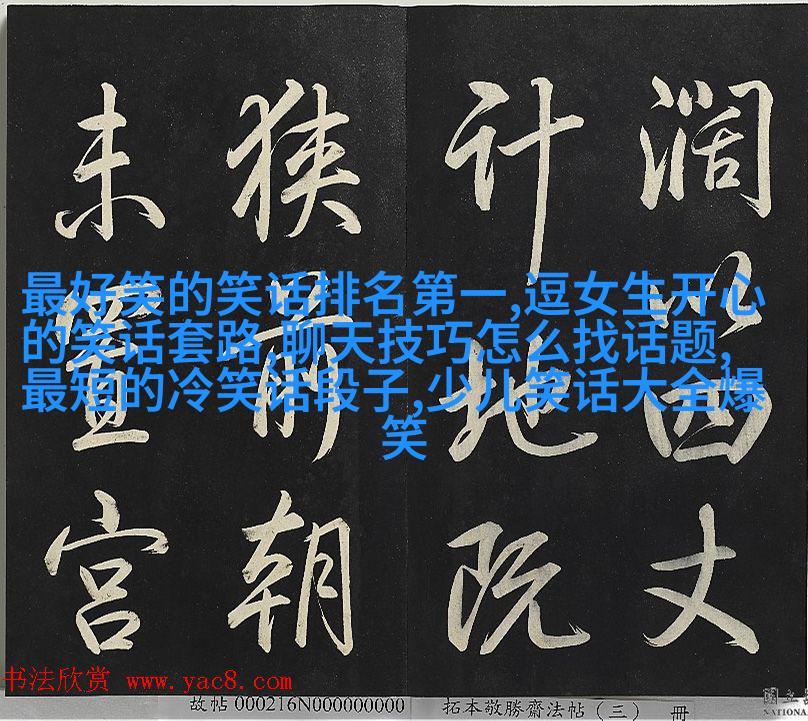 濶以四丈
計地既
狭前朝
未置宫
最好笑的笑话排名第一,逗女生开心
的笑话套路,聊天技巧怎么找话题,
最短的冷笑话段子,少儿笑话大全爆
笑
书法欣赏 www.yac8.com
故帖 000216N000000000 拓本敬勝齋法帖（三） 冊
國立
NATIONA